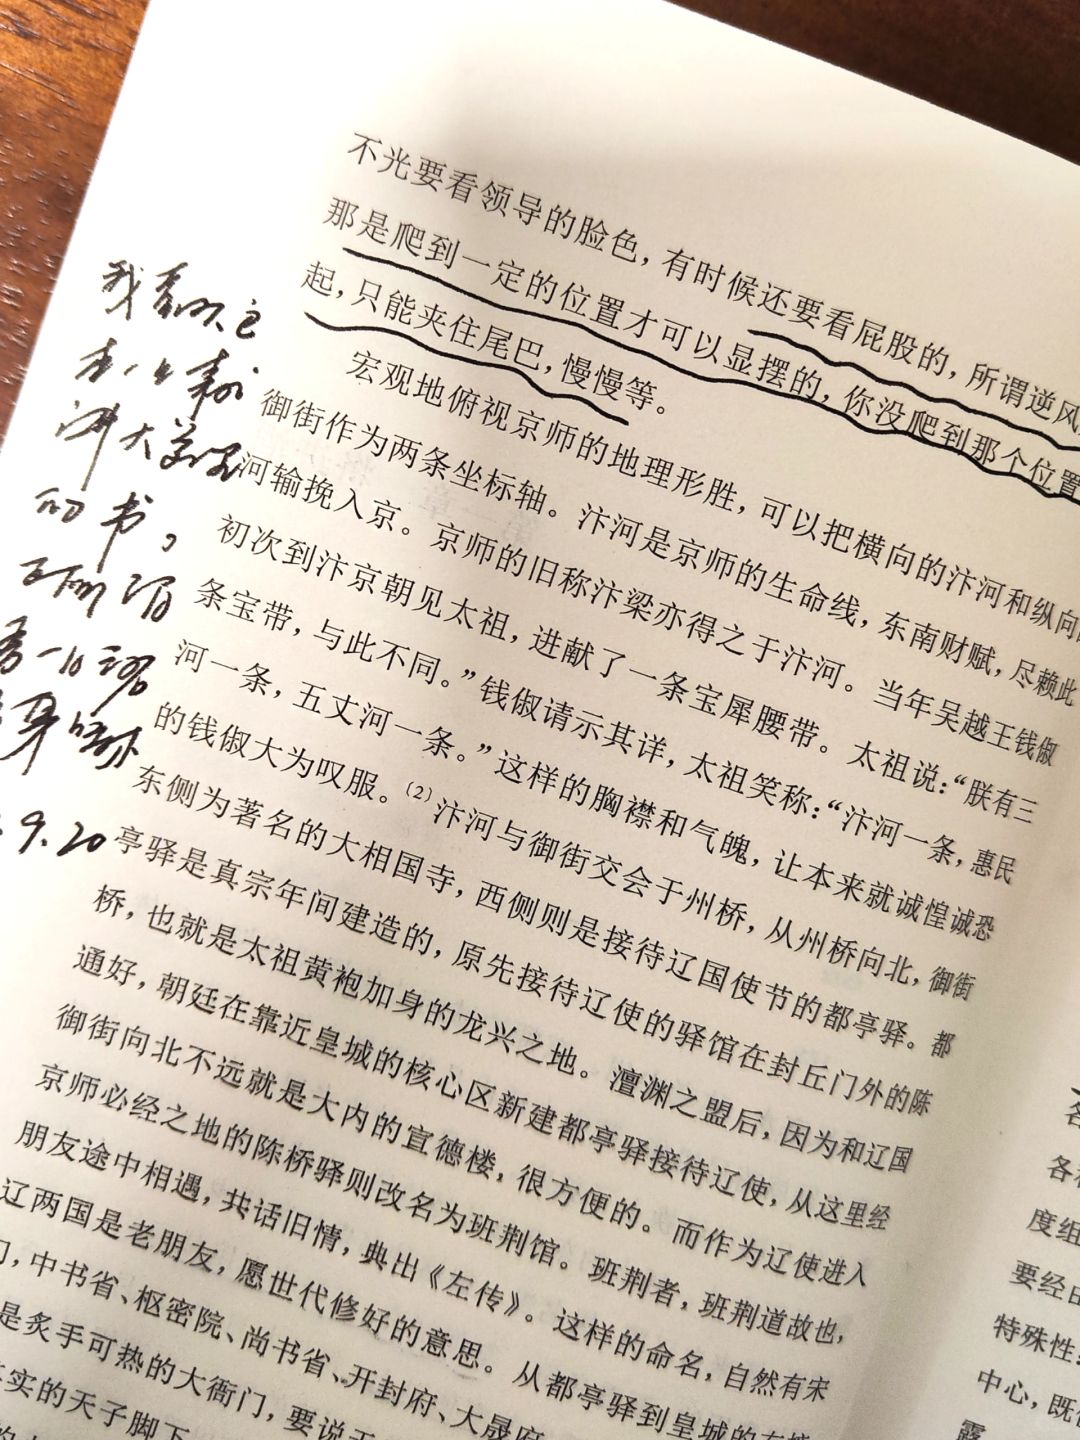 不光要看领导的脸色，有时候还要看屁股的，所谓逆风
那是爬到一定的位置才可以显摆的，你没爬到那个位置
起，只能夹住尾巴，慢慢等。
宏观地俯视京师的地理形胜，可以把横向的汴河和纵向
御街作为两条坐标轴。汴河是京师的生命线，东南财赋，尽赖此
河输挽入京。京师的旧称汴梁亦得之于汴河。当年吴越王钱俶
初次到汴京朝见太祖，进献了一条宝犀腰带。太祖说：“朕有三
条宝带，与此不同。”钱俶请示其详，太祖笑称：“汴河一条，惠民
河一条，五丈河一条。”这样的胸襟和气魄，让本来就诚惶诚恐
的钱俶大为叹服。(2)汴河与御街交会于州桥，从州桥向北，御街
东侧为著名的大相国寺，西侧则是接待辽国使节的都亭驿。都
亭驿是真宗年间建造的，原先接待辽使的驿馆在封丘门外的陈
桥，也就是太祖黄袍加身的龙兴之地。澶渊之盟后，因为和辽国
通好，朝廷在靠近皇城的核心区新建都亭驿接待辽使，从这里经
御街向北不远就是大内的宣德楼，很方便的。而作为辽使进入
京师必经之地的陈桥驿则改名为班荆馆。班荆者，班荆道故也，
朋友途中相遇，共话旧情，典出《左传》。这样的命名，自然有宋
辽两国是老朋友，愿世代修好的意思。从都亭驿到皇城的
门，中书省、枢密院、尚书省、开封府、大晟府
是炙手可热的大衙门，要说
实的天子脚下
我
大
的书，
9.20
各
度组
要经由
特殊性
中心，既
露